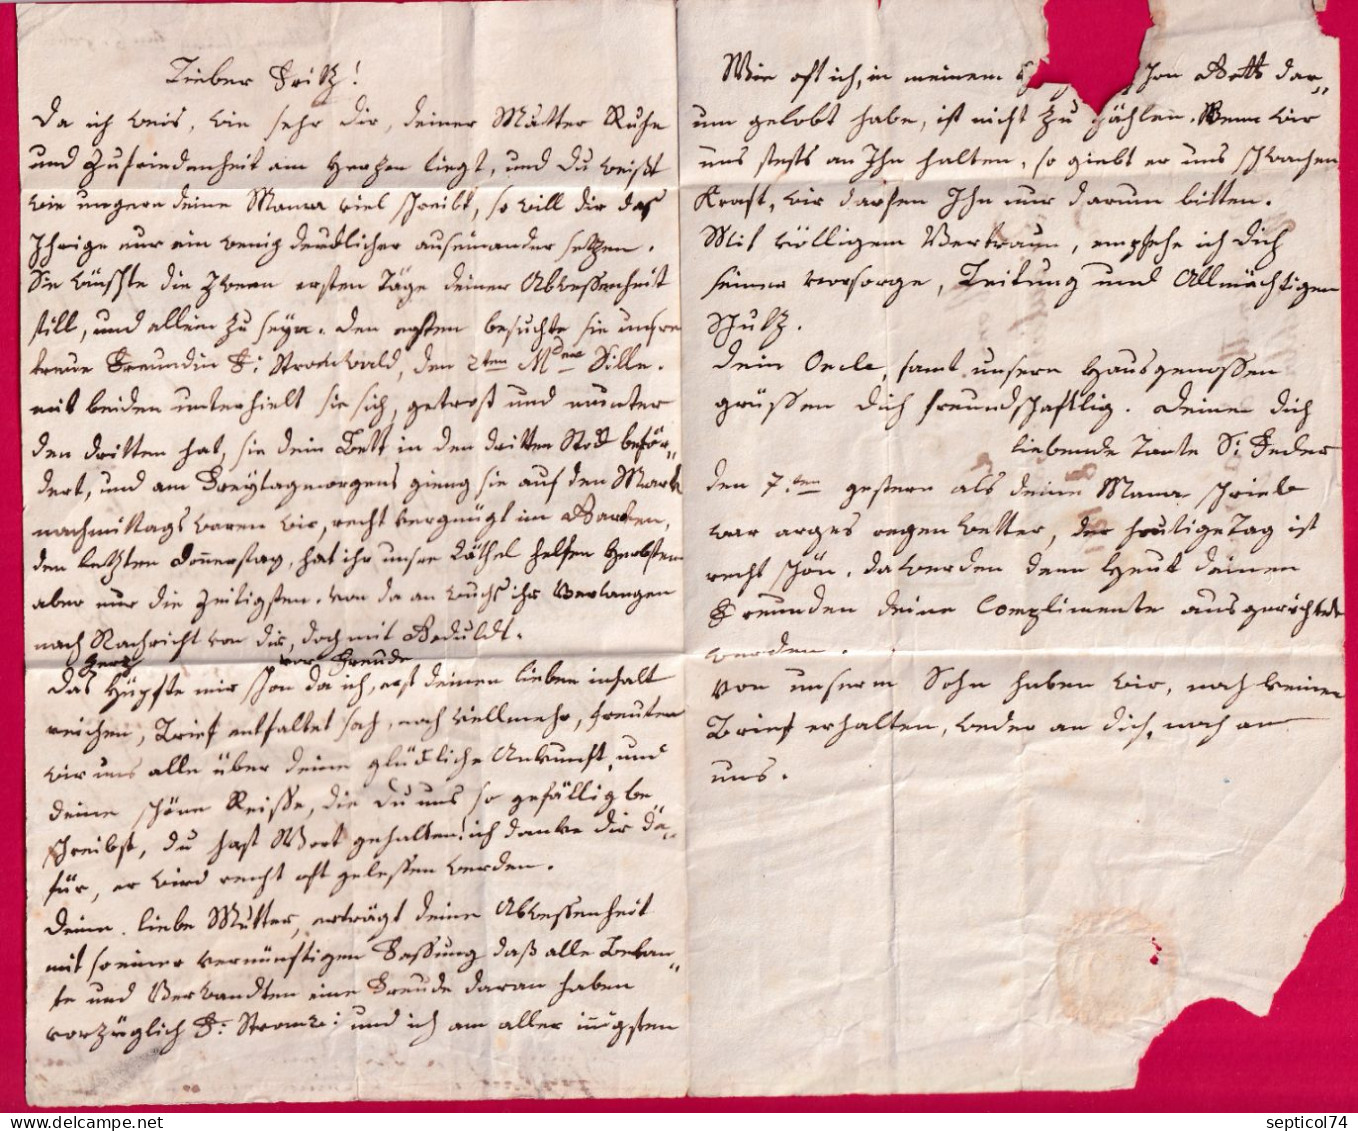 Lieber Fritz!
Da ich weis, wie sehr dir, deiner Mutter Ruhe
und Zufriedenheit am Herzen liegt, und du weißt
wie ungern deine Mama viel schreibt, so will dir das
Ihrige nur ein wenig deudlicher auseinander setzen.
Sie wünschte die zween ersten Täge deiner Abwessenheit
still, und allein zu seyn. den ersten besuchte sie unsre
treue Freundin F: Stromwald, den 2ten Mdme Sille.
mit beiden unterhielt sie sich, getrost und munter
den dritten hat, sie dein Bett in den dritten Stock beför„
dert, und am Freytagmorgens gieng sie auf den Markt
nachmittags waren wir, recht vergnügt im Garten,
den letzten Donnerstag, hat ihr unsre Käthel helfen Herbsten
aber nur die zeitigsten. von da an wuchs ihr Verlangen
nach Nachricht von dir, doch mit Geduldt.
Herz vor Freude
Das Hüpfte mir schon da ich, erst deinen lieben inhalt
reichen, Brief entfaltet sah, noch viellmehr, freuten
wir uns alle über deine glückliche Ankunft, und
deine schöne Reisse, die du uns so gefällig be
schreibst, du hast Wort gehalten! ich danke dir da„
für, er wird recht oft gelessen werden.
Deine liebe Mutter, erträgt deine Abwessenheit
mit so einer vernünftigen Fassung daß alle Bekan„
te und Verwandten eine Freude daran haben
vorzüglich F: Stromw: und ich am aller innigsten
Wie oft ich, in meinem schon Gott dar„
um gelobt habe, ist nicht zu zählen. Wenn wir
uns stets an Ihn halten, so giebt er uns schwachen
Kraft, wir darfen Ihn nur darum bitten.
Mit völligem Vertraun, empfehe ich dich
seiner vorsorge, Leitung und Allmächtigen
Schutz.
dein Oncle, samt unsern Hausgenossen
grüssen dich freundschaftlig. deine dich
liebende Tante S: Feder
den 7.ten gestern als deine Mama schrieb
war arges regen wetter, der heutige Tag ist
recht schön. da werden denn Heut deinen
Freunden deine Complimente ausgerichtet
werden.
von unserm Sohn haben wir, noch keinen
Brief erhalten, weder an dich, noch an
uns.
septicol74